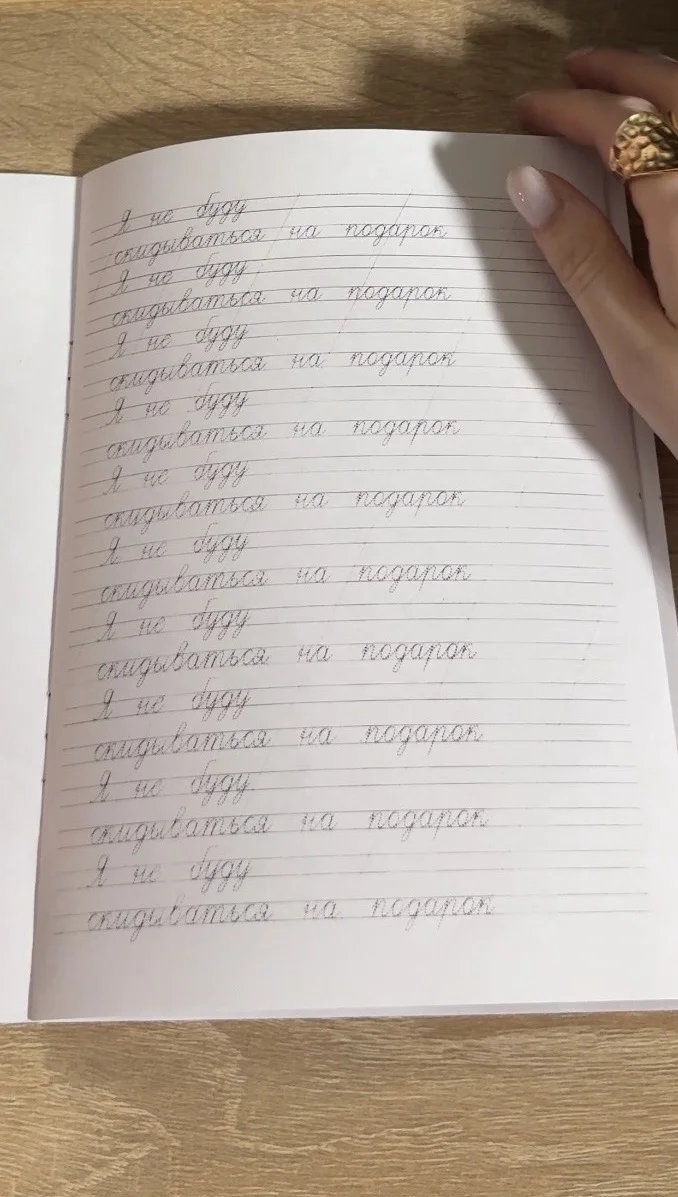 Я не буду
скидываться на подарок
Я не буду
скидываться на подарок
Я не буду
скидываться на подарок
Я не буду
скидываться на подарок
Я не буду
скидываться на подарок
Я не буду
скидываться на подарок
Я не буду
скидываться на подарок
Я не буду
скидываться на подарок
Я не буду
скидываться на подарок
Я не буду
скидываться на подарок